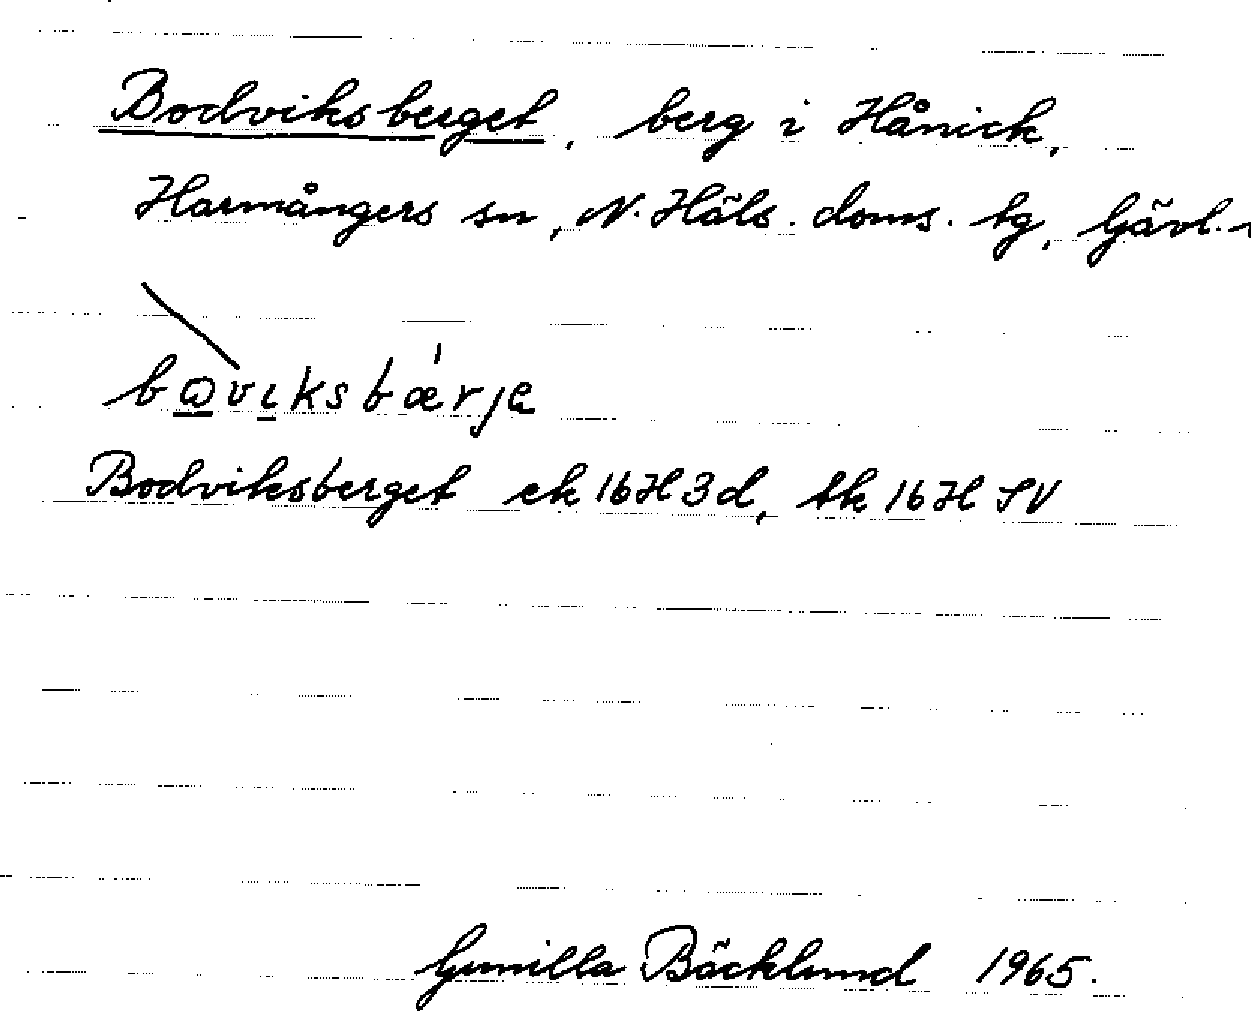 Bodviksberget, berg i Hånick,
Harmångers sn, N. Häls. doms. tg, Gävl.
Bodviksberget ek 16H3d, tk 16H SV
Gunilla Bäcklund 1965.